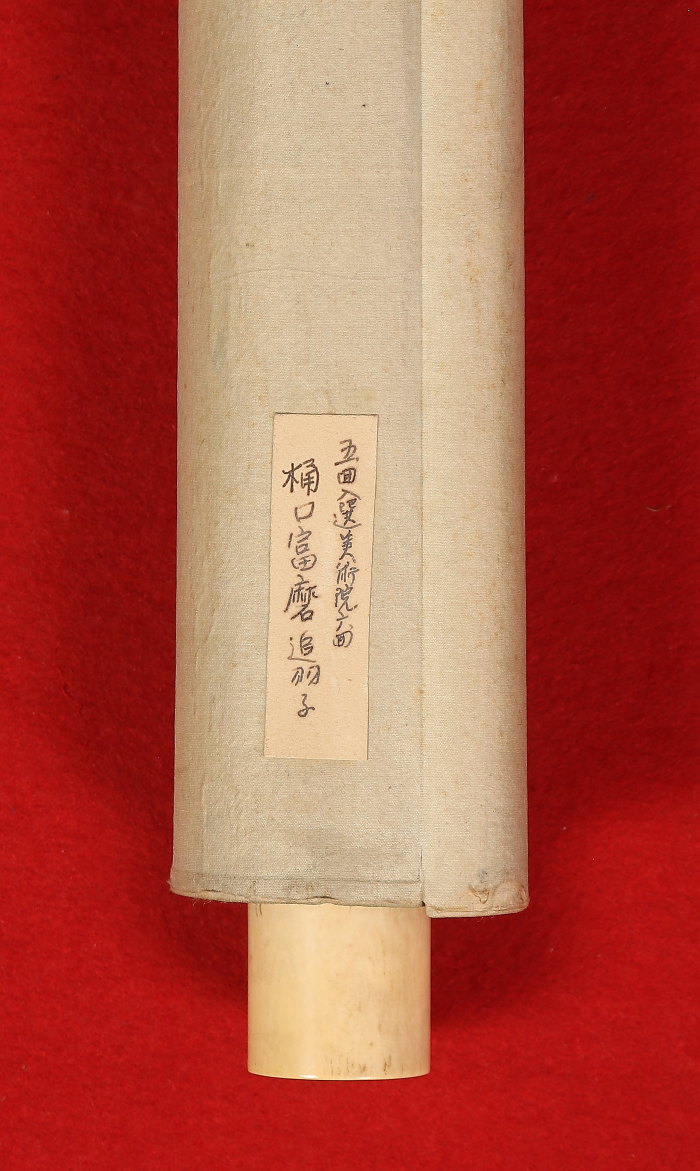 五回入選美術院六回
樋口富麿追羽子